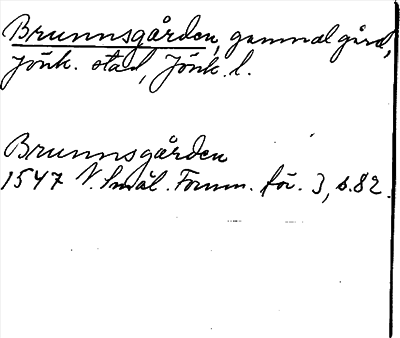 Brunnsgården, gammal gård,
Jönk. stad, Jönk. l.
Brunnsgården
1547 N. Smål. Fornm. för. 3, s. 82.